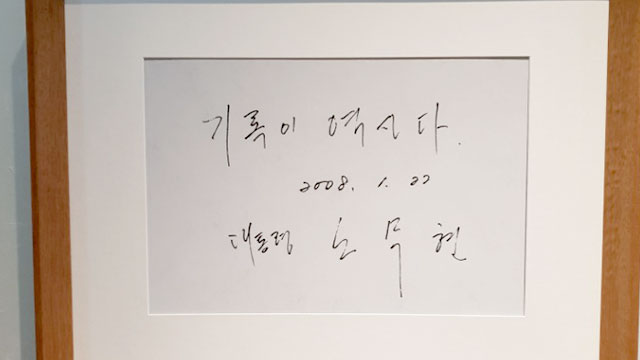 기록이 역사다.
2008. 1. 22
대통령 노무현